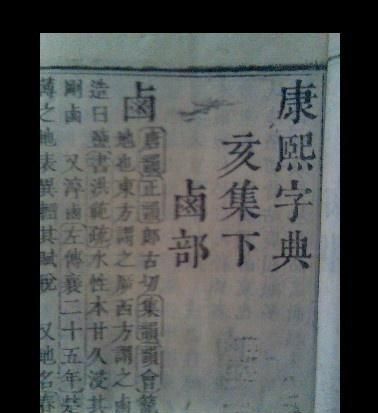 康熙字典
亥集下
鹵部
鹵
唐韻正韻郎古切集韻韻會籠
地也東方謂之㡿西方謂之鹵
造曰鹽書洪範疏水性本甘久浸其
剛鹵 又淳鹵左傳襄二十五年楚
薄之地表異輕其賦稅 又地名春